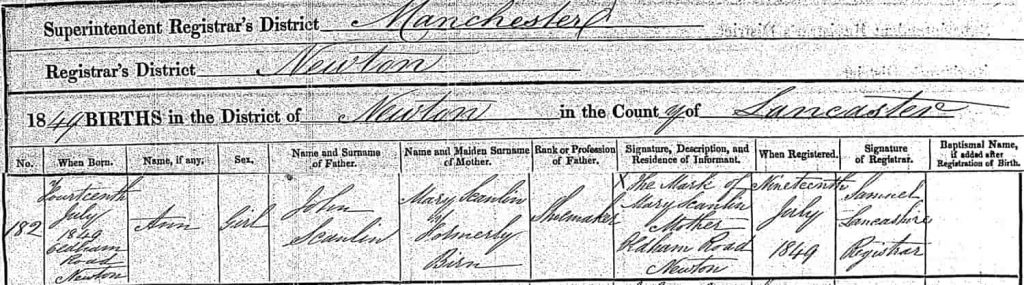 Superintendent Registrar's District Manchester
Registrar's District Newton
1849 BIRTHS in the District of Newton in the County of Lancaster
No. When Born. Name, if any. Sex. Name and Surname of Father. Name and Maiden Surname of Mother. Rank or Profession of Father. Signature, Description, and Residence of Informant. When Registered. Signature of Registrar. Baptismal Name, if added after Registration of Birth.
182
Fourteenth
July
1849
Oldham
Road
Newton
Ann
Girl
John
Scanlin
Mary Scanlin
Formerly
Birn
Shoemaker
X The Mark of
Mary Scanlin
Mother
Oldham Road
Newton
Nineteenth
July
1849
Samuel
Lancashire
Registrar